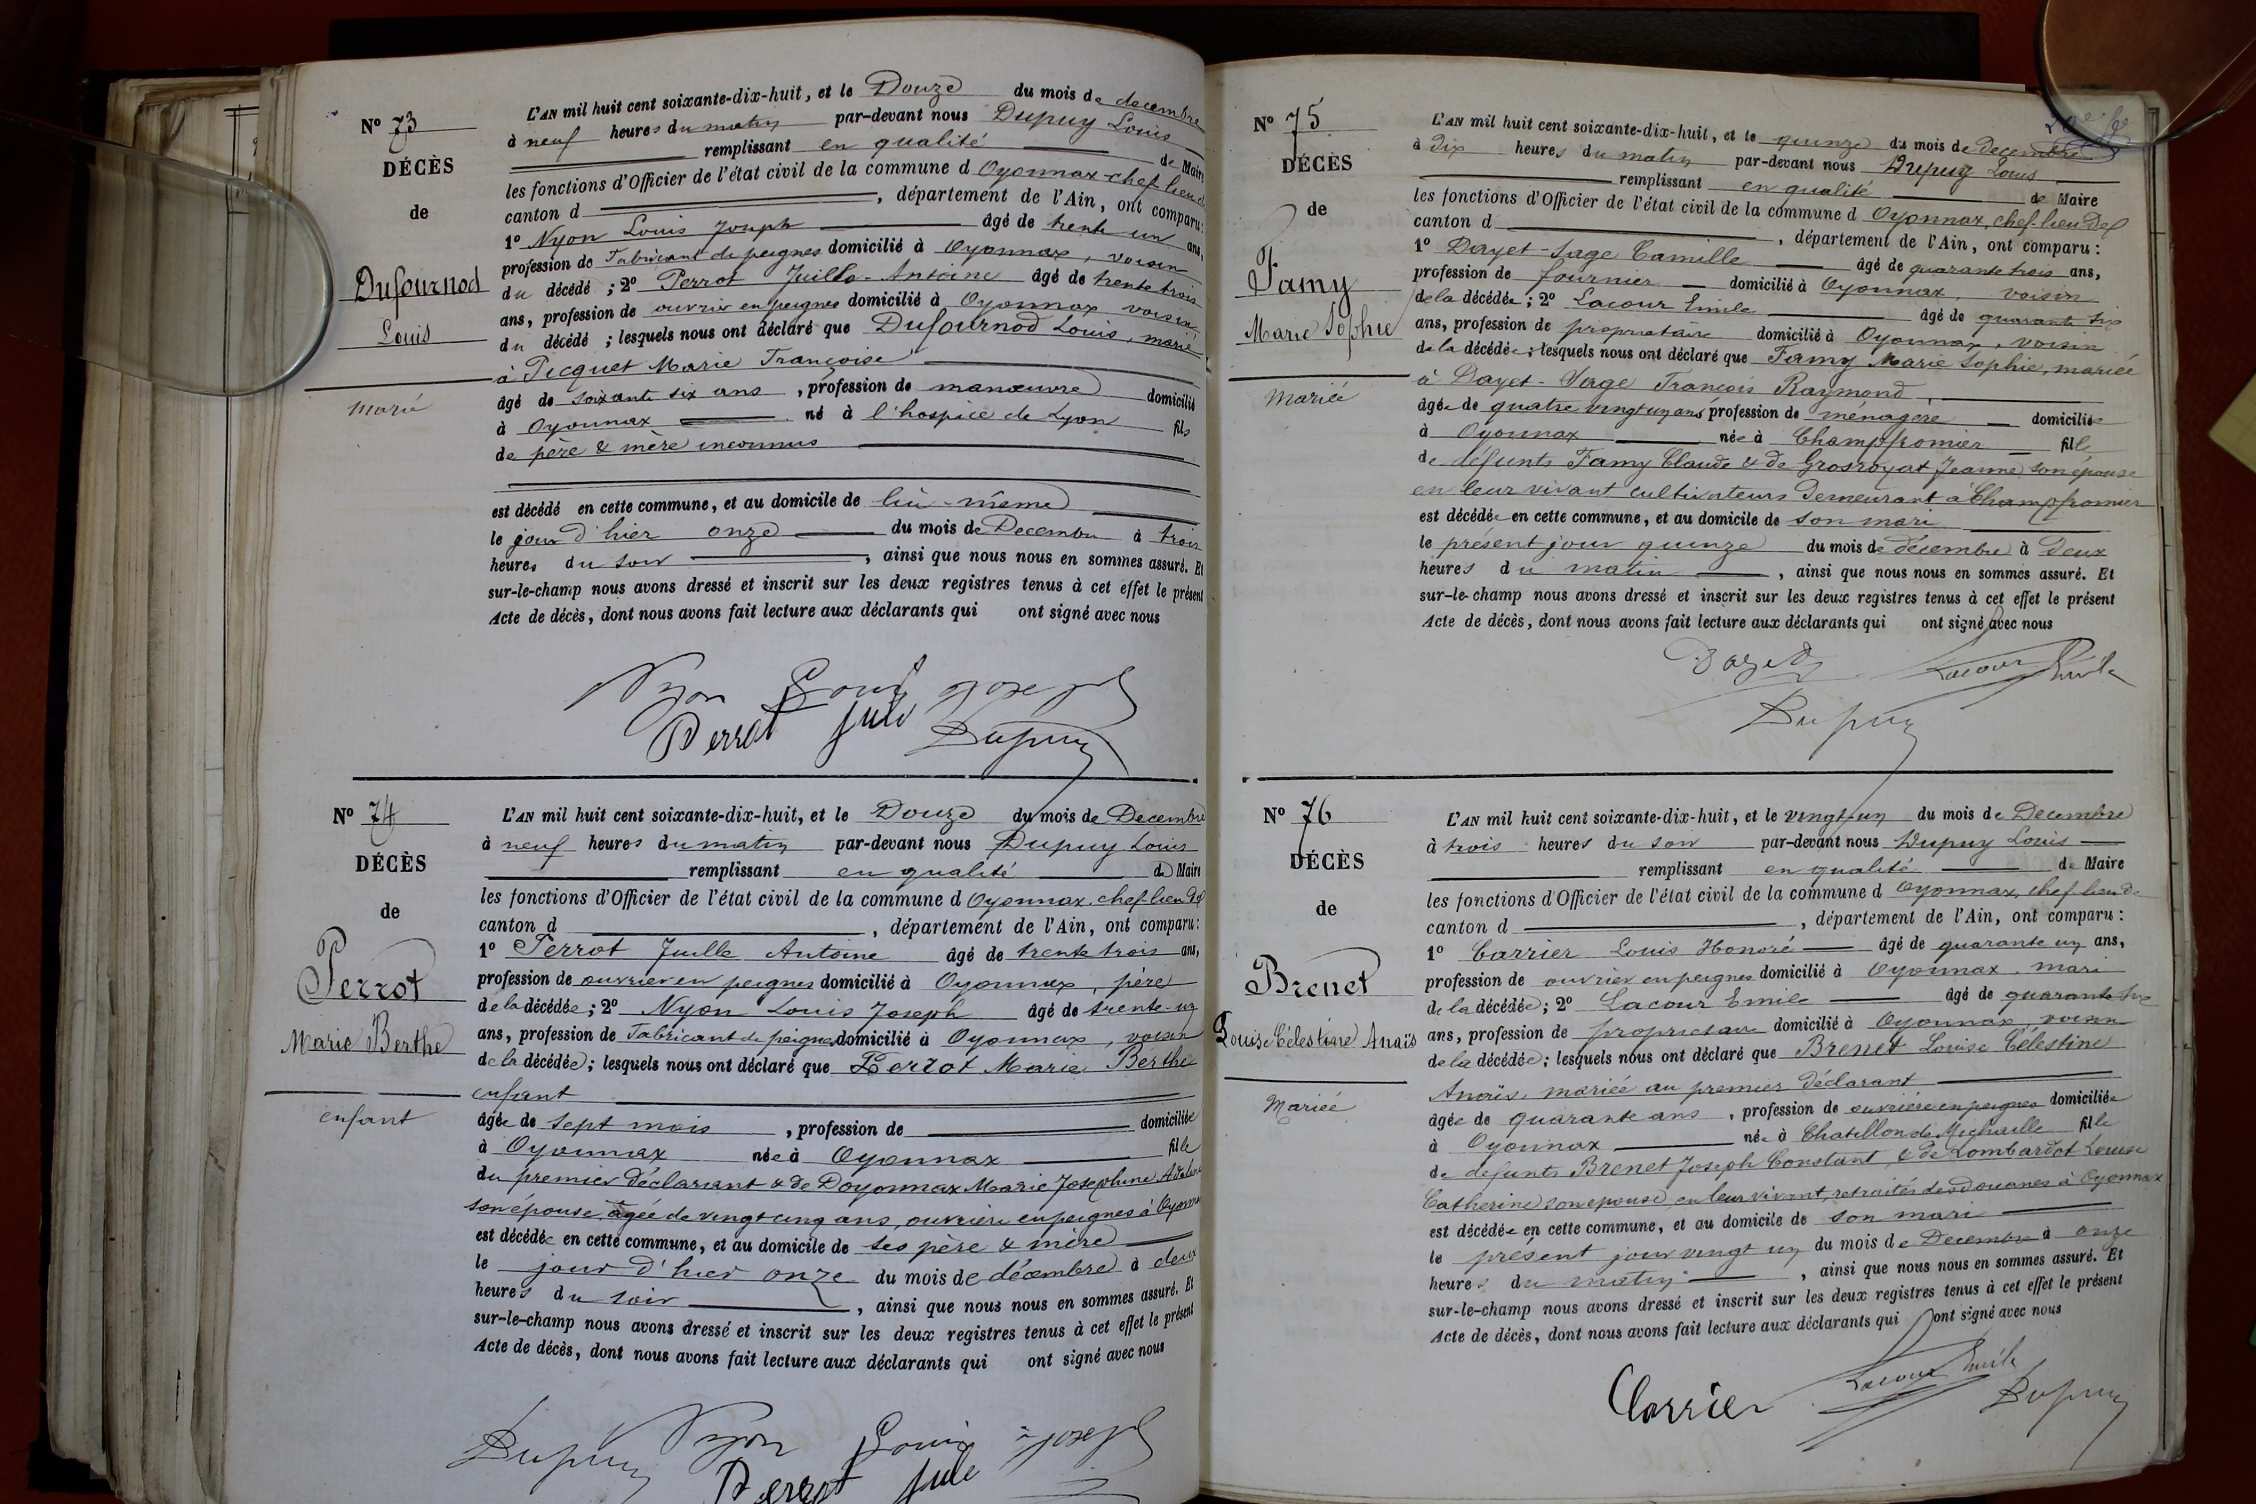 Nº 73
DÉCÈS
de
Dufournod
Louis
marié
L'AN mil huit cent soixante-dix-huit, et le Douze du mois de decembre
à neuf heures du matin par-devant nous Dupuy Louis
remplissant en qualité de Maire
les fonctions d'Officier de l'état civil de la commune d Oyonnax chef-lieu d
canton d , département de l'Ain, ont comparu :
1º Nyon Louis Joseph âgé de trente un ans,
profession de Fabricant de peignes domicilié à Oyonnax, voisin
du décédé ; 2º Perrot Juille-Antoine âgé de trente trois
ans, profession de ouvrier en peignes domicilié à Oyonnax voisin
du décédé ; lesquels nous ont déclaré que Dufournod Louis, marié
à Picquet Marie Françoise
âgé de soixante six ans , profession de manœuvre domicilié
à Oyonnax né à l'hospice de Lyon fils
de père & mère inconnus
est décédé en cette commune, et au domicile de lui-même
le jour d'hier onze du mois de Decembre à trois
heures du soir , ainsi que nous nous en sommes assuré. Et
sur-le-champ nous avons dressé et inscrit sur les deux registres tenus à cet effet le présent
Acte de décès, dont nous avons fait lecture aux déclarants qui ont signé avec nous
Nyon Louis Joseph
Perrot Jule Dupuy
Nº 74
DÉCÈS
de
Perrot
Marie Berthe
enfant
L'AN mil huit cent soixante-dix-huit, et le Douze du mois de Decembre
à neuf heures du matin par-devant nous Dupuy Louis
remplissant en qualité de Maire
les fonctions d'Officier de l'état civil de la commune d Oyonnax, chef-lieu de
canton d , département de l'Ain, ont comparu :
1º Perrot Juille Antoine âgé de trente trois ans,
profession de ouvrier en peignes domicilié à Oyonnax, père
de la décédée ; 2º Nyon Louis Joseph âgé de trente-un
ans, profession de Fabricant de peignes domicilié à Oyonnax, voisin
de la décédée ; lesquels nous ont déclaré que Perrot Marie Berthe
enfant
âgée de sept mois , profession de domiciliée
à Oyonnax née à Oyonnax fille
du premier déclarant & de Doyonnax Marie Josephine
son épouse, âgée de vingt cinq ans, ouvrière en peignes à Oyonnax
est décédée en cette commune, et au domicile de ses père & mère
le jour d'hier onze du mois de décembre à deux
heures du soir , ainsi que nous nous en sommes assuré. Et
sur-le-champ nous avons dressé et inscrit sur les deux registres tenus à cet effet le présent
Acte de décès, dont nous avons fait lecture aux déclarants qui ont signé avec nous
Dupuy Nyon Louis Joseph
Perrot Jule
Nº 75
DÉCÈS
de
Famy
Marie Sophie
Mariée
L'AN mil huit cent soixante-dix-huit, et le quinze du mois de decembre
à dix heures du matin par-devant nous Dupuy Louis
remplissant en qualité de Maire
les fonctions d'Officier de l'état civil de la commune d Oyonnax, chef-lieu de
canton d , département de l'Ain, ont comparu :
1º Dayet-Sage Camille âgé de quarante trois ans,
profession de fournier domicilié à Oyonnax, voisin
de la décédée ; 2º Lacour Emile âgé de quarante six
ans, profession de propriétaire domicilié à Oyonnax, voisin
de la décédée ; lesquels nous ont déclaré que Famy Marie Sophie, mariée
à Dayet-Sage François Raymond,
âgée de quatre vingt un ans profession de ménagère domiciliée
à Oyonnax née à Champfromier fille
de defunts Famy Claude & de Grosroyat Jeanne son épouse
en leur vivant cultivateurs demeurant à Champfromier
est décédée en cette commune, et au domicile de son mari
le présent jour quinze du mois de décembre à Deux
heures du matin , ainsi que nous nous en sommes assuré. Et
sur-le-champ nous avons dressé et inscrit sur les deux registres tenus à cet effet le présent
Acte de décès, dont nous avons fait lecture aux déclarants qui ont signé avec nous
Dayet Lacour Emile
Dupuy
Nº 76
DÉCÈS
de
Brenet
Louise Célestine Anaïs
Mariée
L'AN mil huit cent soixante-dix-huit, et le vingt-un du mois de Decembre
à trois heures du soir par-devant nous Dupuy Louis
remplissant en qualité de Maire
les fonctions d'Officier de l'état civil de la commune d Oyonnax, chef-lieu de
canton d , département de l'Ain, ont comparu :
1º Carrier Louis Honoré âgé de quarante un ans,
profession de ouvrier en peignes domicilié à Oyonnax, mari
de la décédée ; 2º Lacour Emile âgé de quarante six
ans, profession de propriétaire domicilié à Oyonnax, voisin
de la décédée ; lesquels nous ont déclaré que Brenet Louise Célestine
Anaïs, mariée au premier déclarant
âgée de quarante ans , profession de ouvrière en peignes domiciliée
à Oyonnax née à Chatillon de Michaille fille
de defunts Brenet Joseph Constant & de Lombardot Louise
Catherine son épouse, en leur vivant, retraités des douanes à Oyonnax
est décédée en cette commune, et au domicile de son mari
le présent jour vingt un du mois de Decembre à onze
heures du matin , ainsi que nous nous en sommes assuré. Et
sur-le-champ nous avons dressé et inscrit sur les deux registres tenus à cet effet le présent
Acte de décès, dont nous avons fait lecture aux déclarants qui ont signé avec nous
Carrier Lacour Emile Dupuy